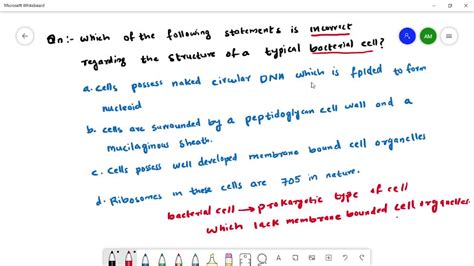 Microsoft Whiteboard
Qn:- Which of the following statements is incorrect
regarding the structure of a typical bacterial cell?
a. cells possess naked circular DNA which is folded to form
nucleoid
b. cells are surrounded by a peptidoglycan cell wall and a
mucilaginous sheath.
c. Cells possess well developed membrane bound cell organelles
d. Ribosomes in these cells are 70S in nature.
bacterial cell → prokaryotic type of cell
which lack membrane bounded cell organelles
AM